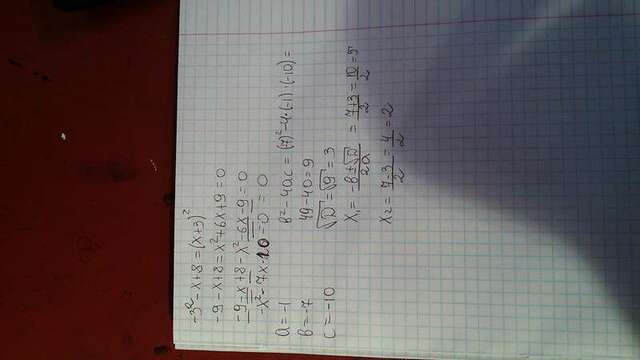 -3² - x + 8 = (x+3)²
-9 - x + 8 = x² + 6x + 9 = 0
-9 - x + 8 - x² - 6x - 9 = 0
-x² - 7x - 10 = 0 = 0
a = -1
b² - 4ac = (7)² - 4·(-1)·(-10) =
b = -7
49 - 40 = 9
c = -10
√D = √9 = 3
X₁ = -b±√D / 2a = 7+3 / 2 = 10 / 2 = 5
X₂ = 7-3 / 2 = 4 / 2 = 2